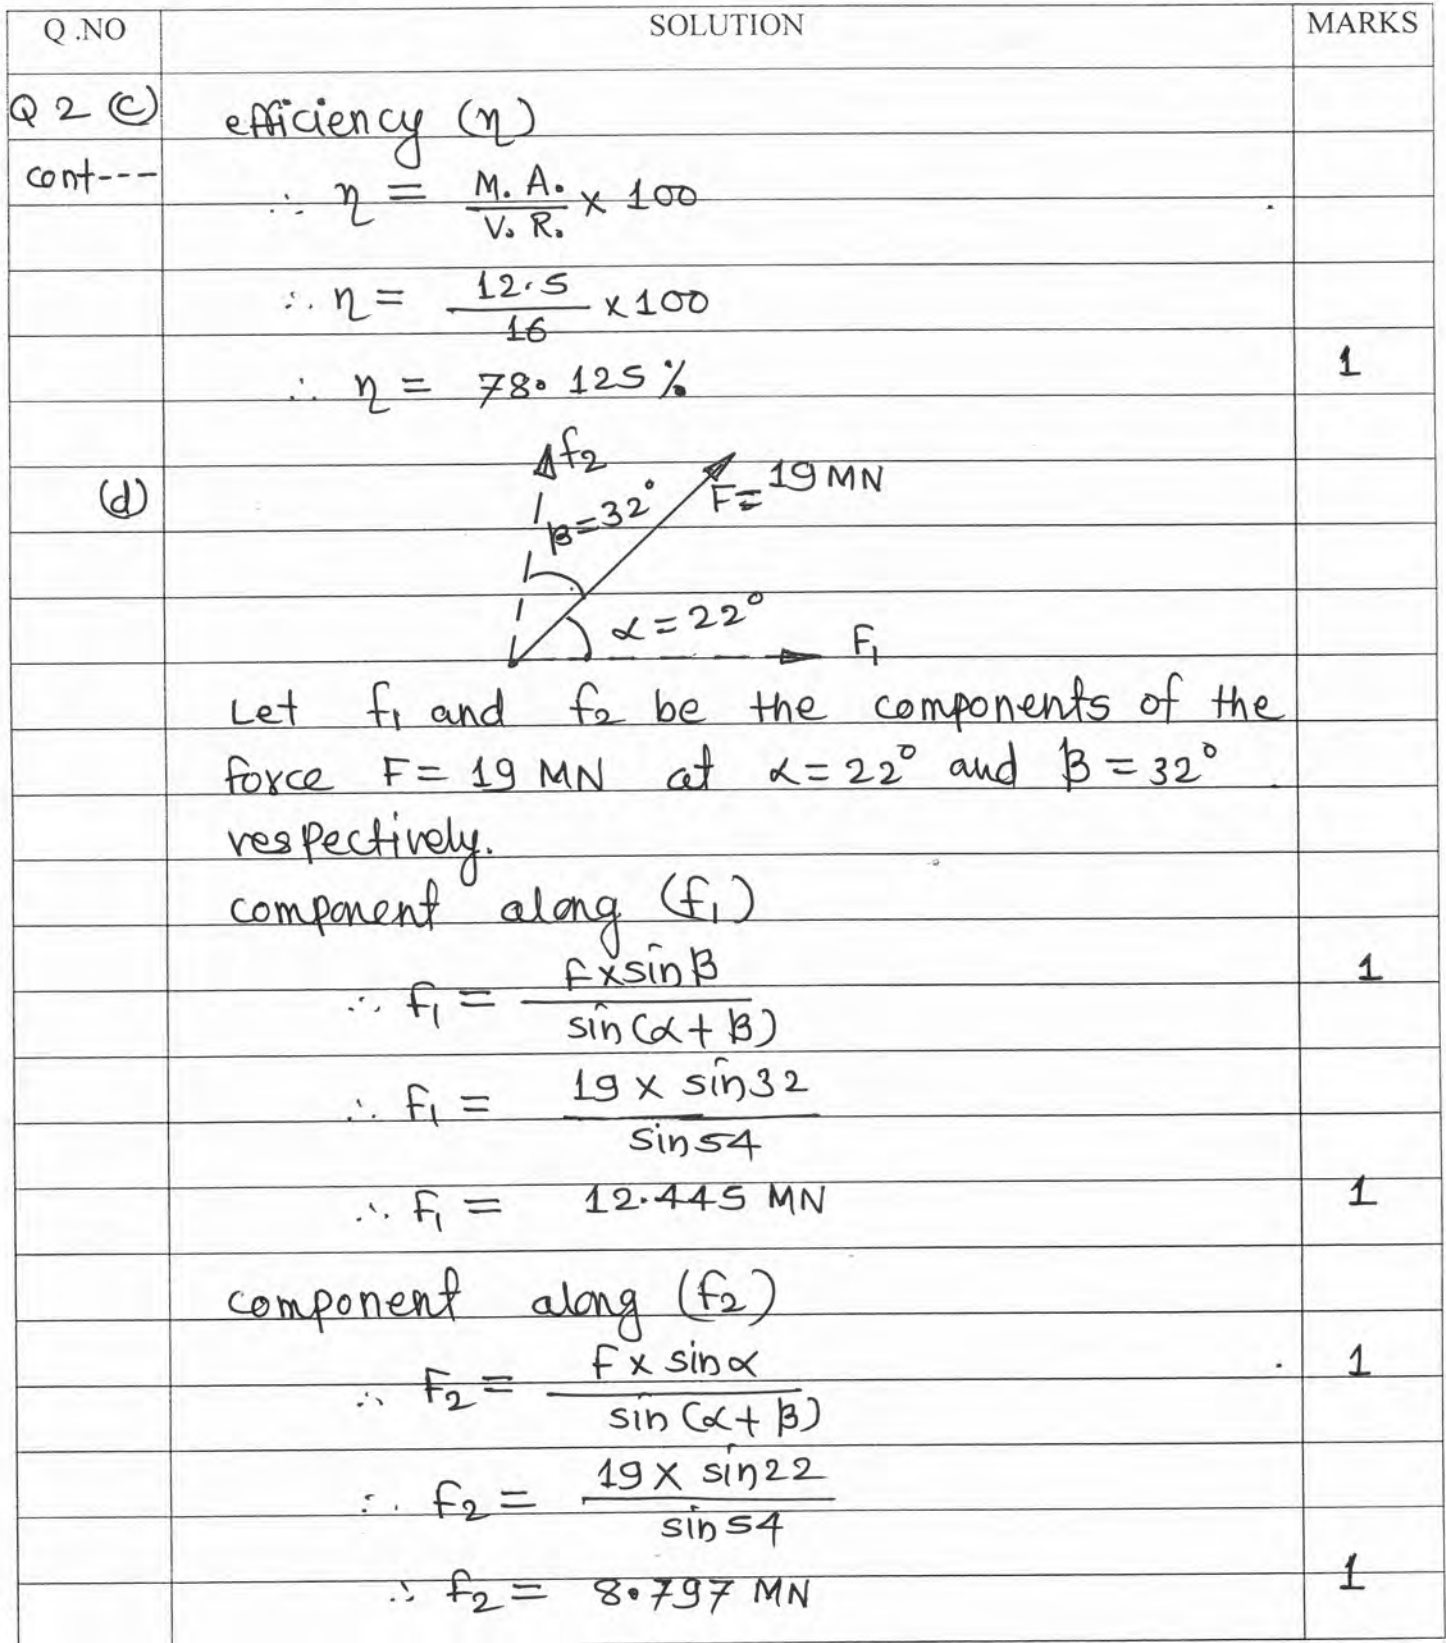 Q .NO SOLUTION MARKS
Q 2 (C) efficiency (η)
cont---
∴ η = M. A. / V. R. × 100
∴ η = 12.5 / 16 × 100
∴ η = 78.125 % 1
(d)
f2
F = 19 MN
β = 32°
α = 22°
F1
Let f1 and f2 be the components of the
force F = 19 MN at α = 22° and β = 32°
respectively.
component along (f1)
∴ f1 = F × sin β / sin (α + β) 1
∴ f1 = 19 × sin 32 / sin 54
∴ f1 = 12.445 MN 1
component along (f2)
∴ F2 = F × sin α / sin (α + β) 1
∴ f2 = 19 × sin 22 / sin 54
∴ f2 = 8.797 MN 1